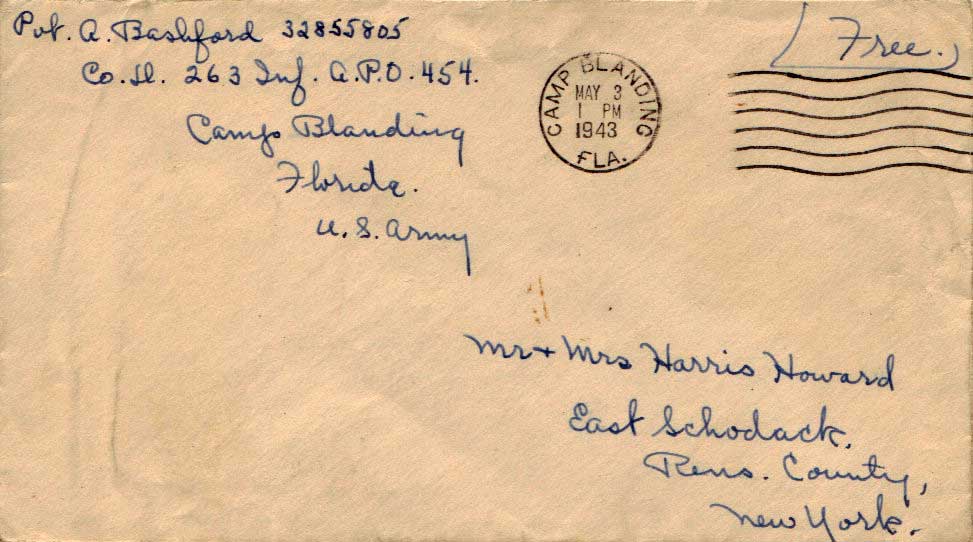 Pvt. A. Bashford 32855805
Co. D. 263 Inf. A.P.O. 454.
Camp Blanding
Florida.
U.S. Army
(Free.)
CAMP BLANDING
MAY 3
1 PM
1943
FLA.
Mr + Mrs Harris Howard
East Schodack,
Rens. County,
New York.